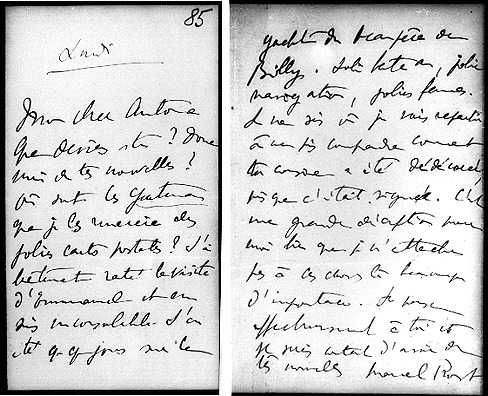 85
Lundi
Mon cher Antoine
Que deviens tu ? Donne
moi de tes nouvelles ?
Où sont les
que je les remercie des
jolies cartes postales ? J'ai
bêtement raté la visite
d'Emmanuel et en
suis inconsolable. J'ai
été qq jours sur le
yacht du beau père de
Billy. Joli bateau, jolie
navigation, jolies femmes.
Je ne sais où je vais repartir
comprendre comment
ton cousin a été dédécoré,
puisque c'était signé. C'est
une grande déception pour
moi bien que je n'attache
pas à ces choses là beaucoup
d'importance. Je pense
affectueusement à toi et
je suis d'avoir de
tes nouvelles Marcel Proust